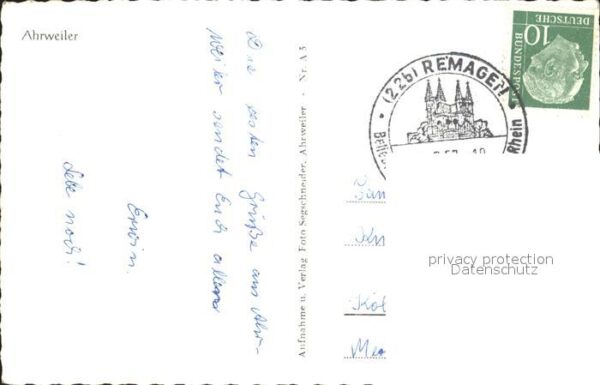 Ahrweiler
Die besten Grüße aus Ahr-
weiler sendet Euch allen
Erwin.
Lebe noch!
Aufnahme u. Verlag Foto Segschneider, Ahrweiler - Nr. A 5
(22b) REMAGEN
Rhein
10
DEUTSCHE
BUNDESPOST
Fam
Kn
Köl
privacy protection
Datenschutz